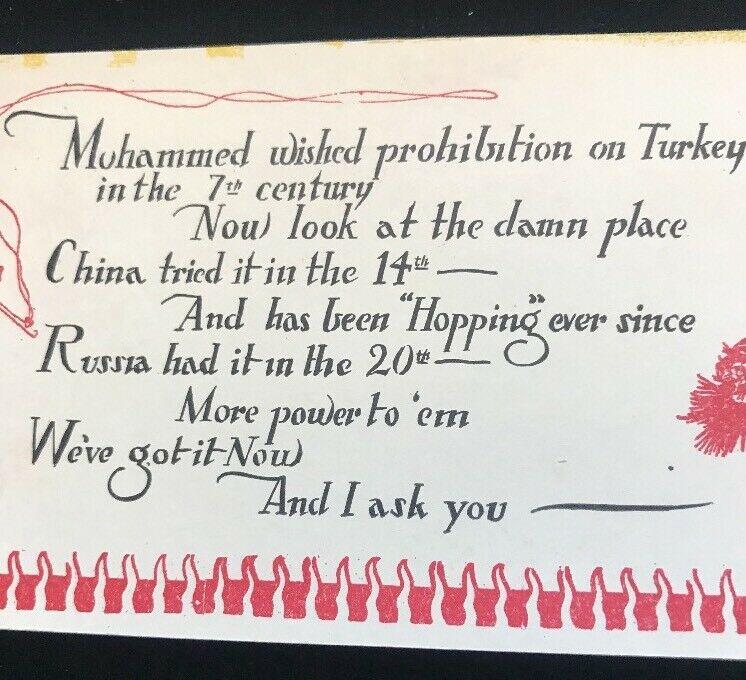 Mohammed wished prohibition on Turkey
in the 7th century
Now look at the damn place
China tried it in the 14th —
And has been "Hopping" ever since
Russia had it in the 20th —
More power to 'em
We've got it Now
And I ask you —